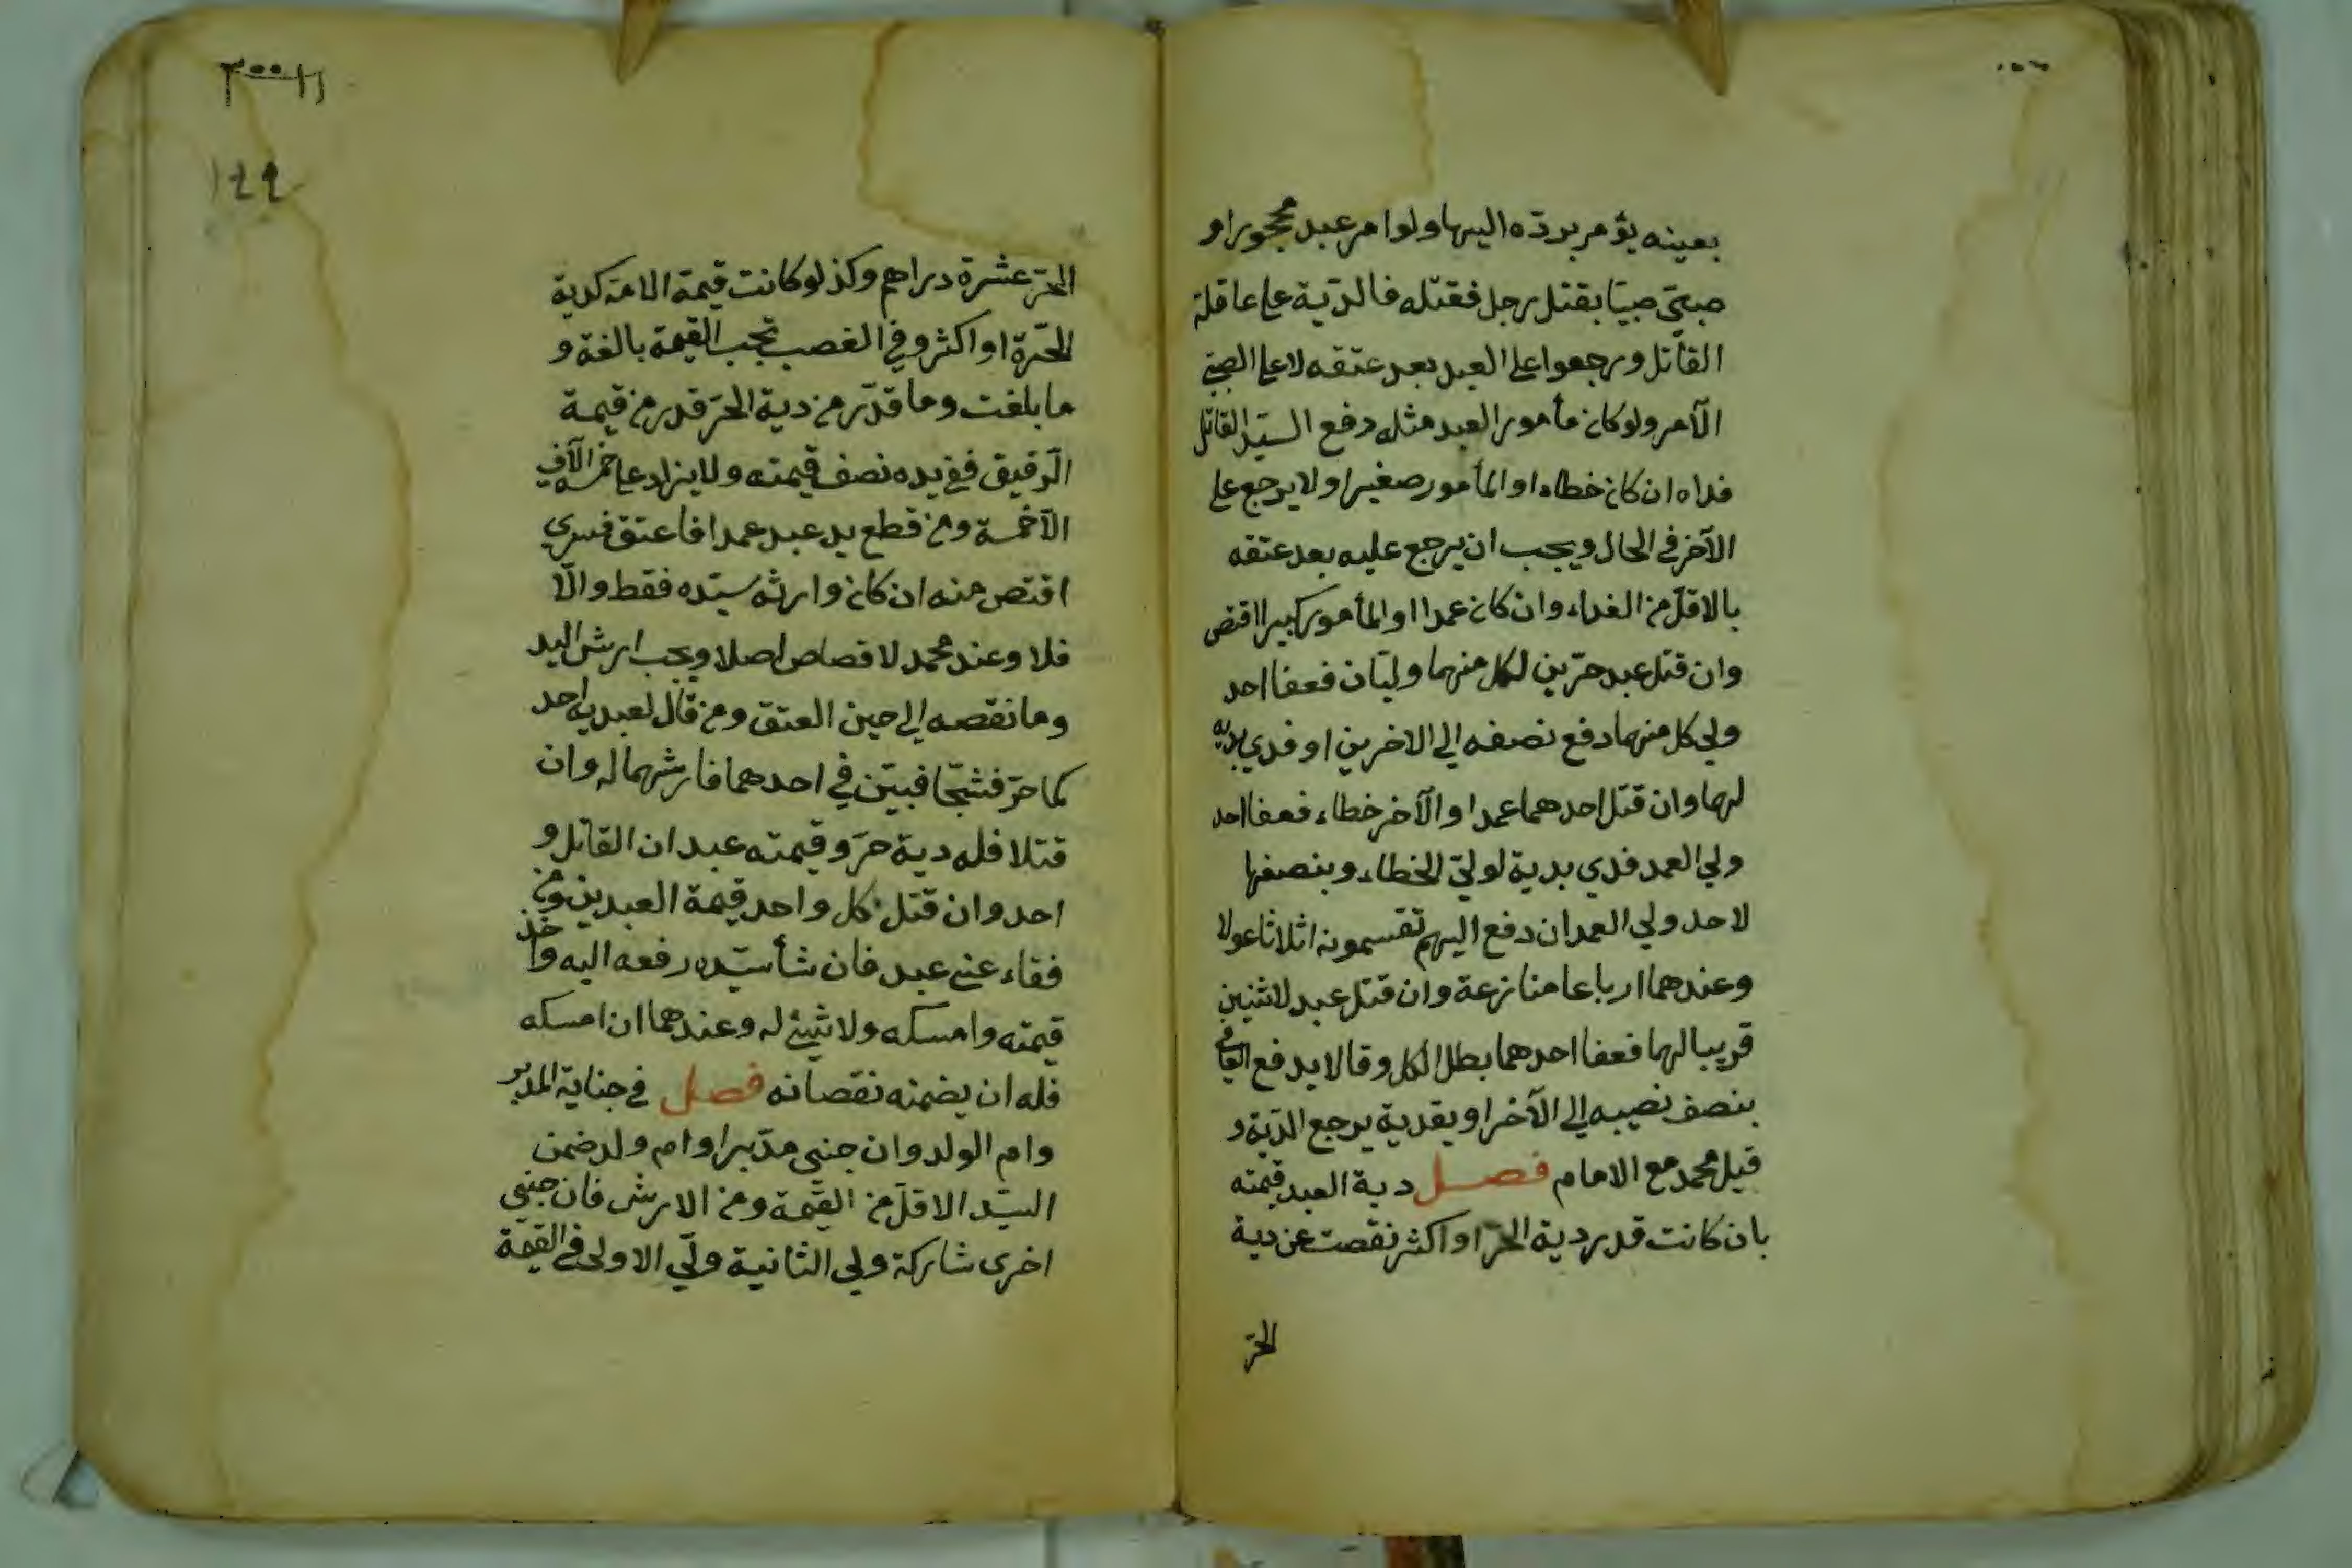 بعينه يؤمر بردّه اليها ولو امر عبد محجور او
صبيّ صبيّا بقتل رجل فقتله فالدّية على عاقلة
القاتل ورجعوا على العبد بعد عتقه لا على الصبيّ
الآمر ولو كان مأمور العبد مثله دفع السيّد القاتل
فداه ان كان خطاء او المأمور صغيرا ولا يرجع على
الآخر في الحال ويجب ان يرجع عليه بعد عتقه
بالاقلّ من الفداء وان كان عمدا او المأمور كبيرا اقتص
وان قتل عبد حرّين لكل منهما وليّان فعفا احد
ولي كل منهما دفع نصفه الى الاخرين او فدي بديه
لهما وان قتل احدهما عمدا والآخر خطاء فعفا احد
ولي العمد فدي بدية لوليّ الخطاء وبنصفها
لاحد ولي العمد ان دفع اليهم تقسمونه اثلاثا عولا
وعندهما ارباعا منازعة وان قتل عبد لاثنين
قريبا لهما فعفا احدهما بطل الكل وقالا يدفع العافي
بنصف نصيبه الى الآخر او يفديه يرجع الدّية و
قيل محمد مع الامام فصل دية العبد قيمته
بان كانت قدر دية الحرّ او اكثر نقصت عن دية
الحرّ
٣٠٠١١
١٤٩
الحرّ عشرة دراهم وكذ لو كانت قيمة الامة كدية
الحرّة او اكثر وفي الغصب تجب القيمة بالغة و
ما بلغت وما قدّر من دية الحرّ قدر من قيمة
الرّقيق ففي يده نصف قيمته ولا يزاد على خمسة الآف
الآخمسة ومن قطع يد عبد عمدا فاعتق فسري
اقتص منه ان كان وارثه سيّده فقط والّا
فلا وعند محمد لا قصاص اصلا ويجب ارش اليد
وما نقصه الى حين العتق ومن قال لعبديه احد
كما حرّ فشجّا فبيّن في احدهما فارشهما له وان
قتلا فله دية حرّ وقيمته عبد ان القاتل و
احد وان قتل كل واحد قيمة العبدين ومن
فقاء عني عبد فان شأ سيّده رفعه اليه واخذ
قيمته وامسكه ولا شيئ له وعندهما ان امسكه
فله ان يضمنه نقصانه فصل في جناية المدبر
وام الولد وان جنى مدّبر او ام ولد ضمن
السيّد الاقلّ من القيّمة ومن الارش فان جنى
اخرى شاركة ولي الثانية وليّ الاولى في القيمة